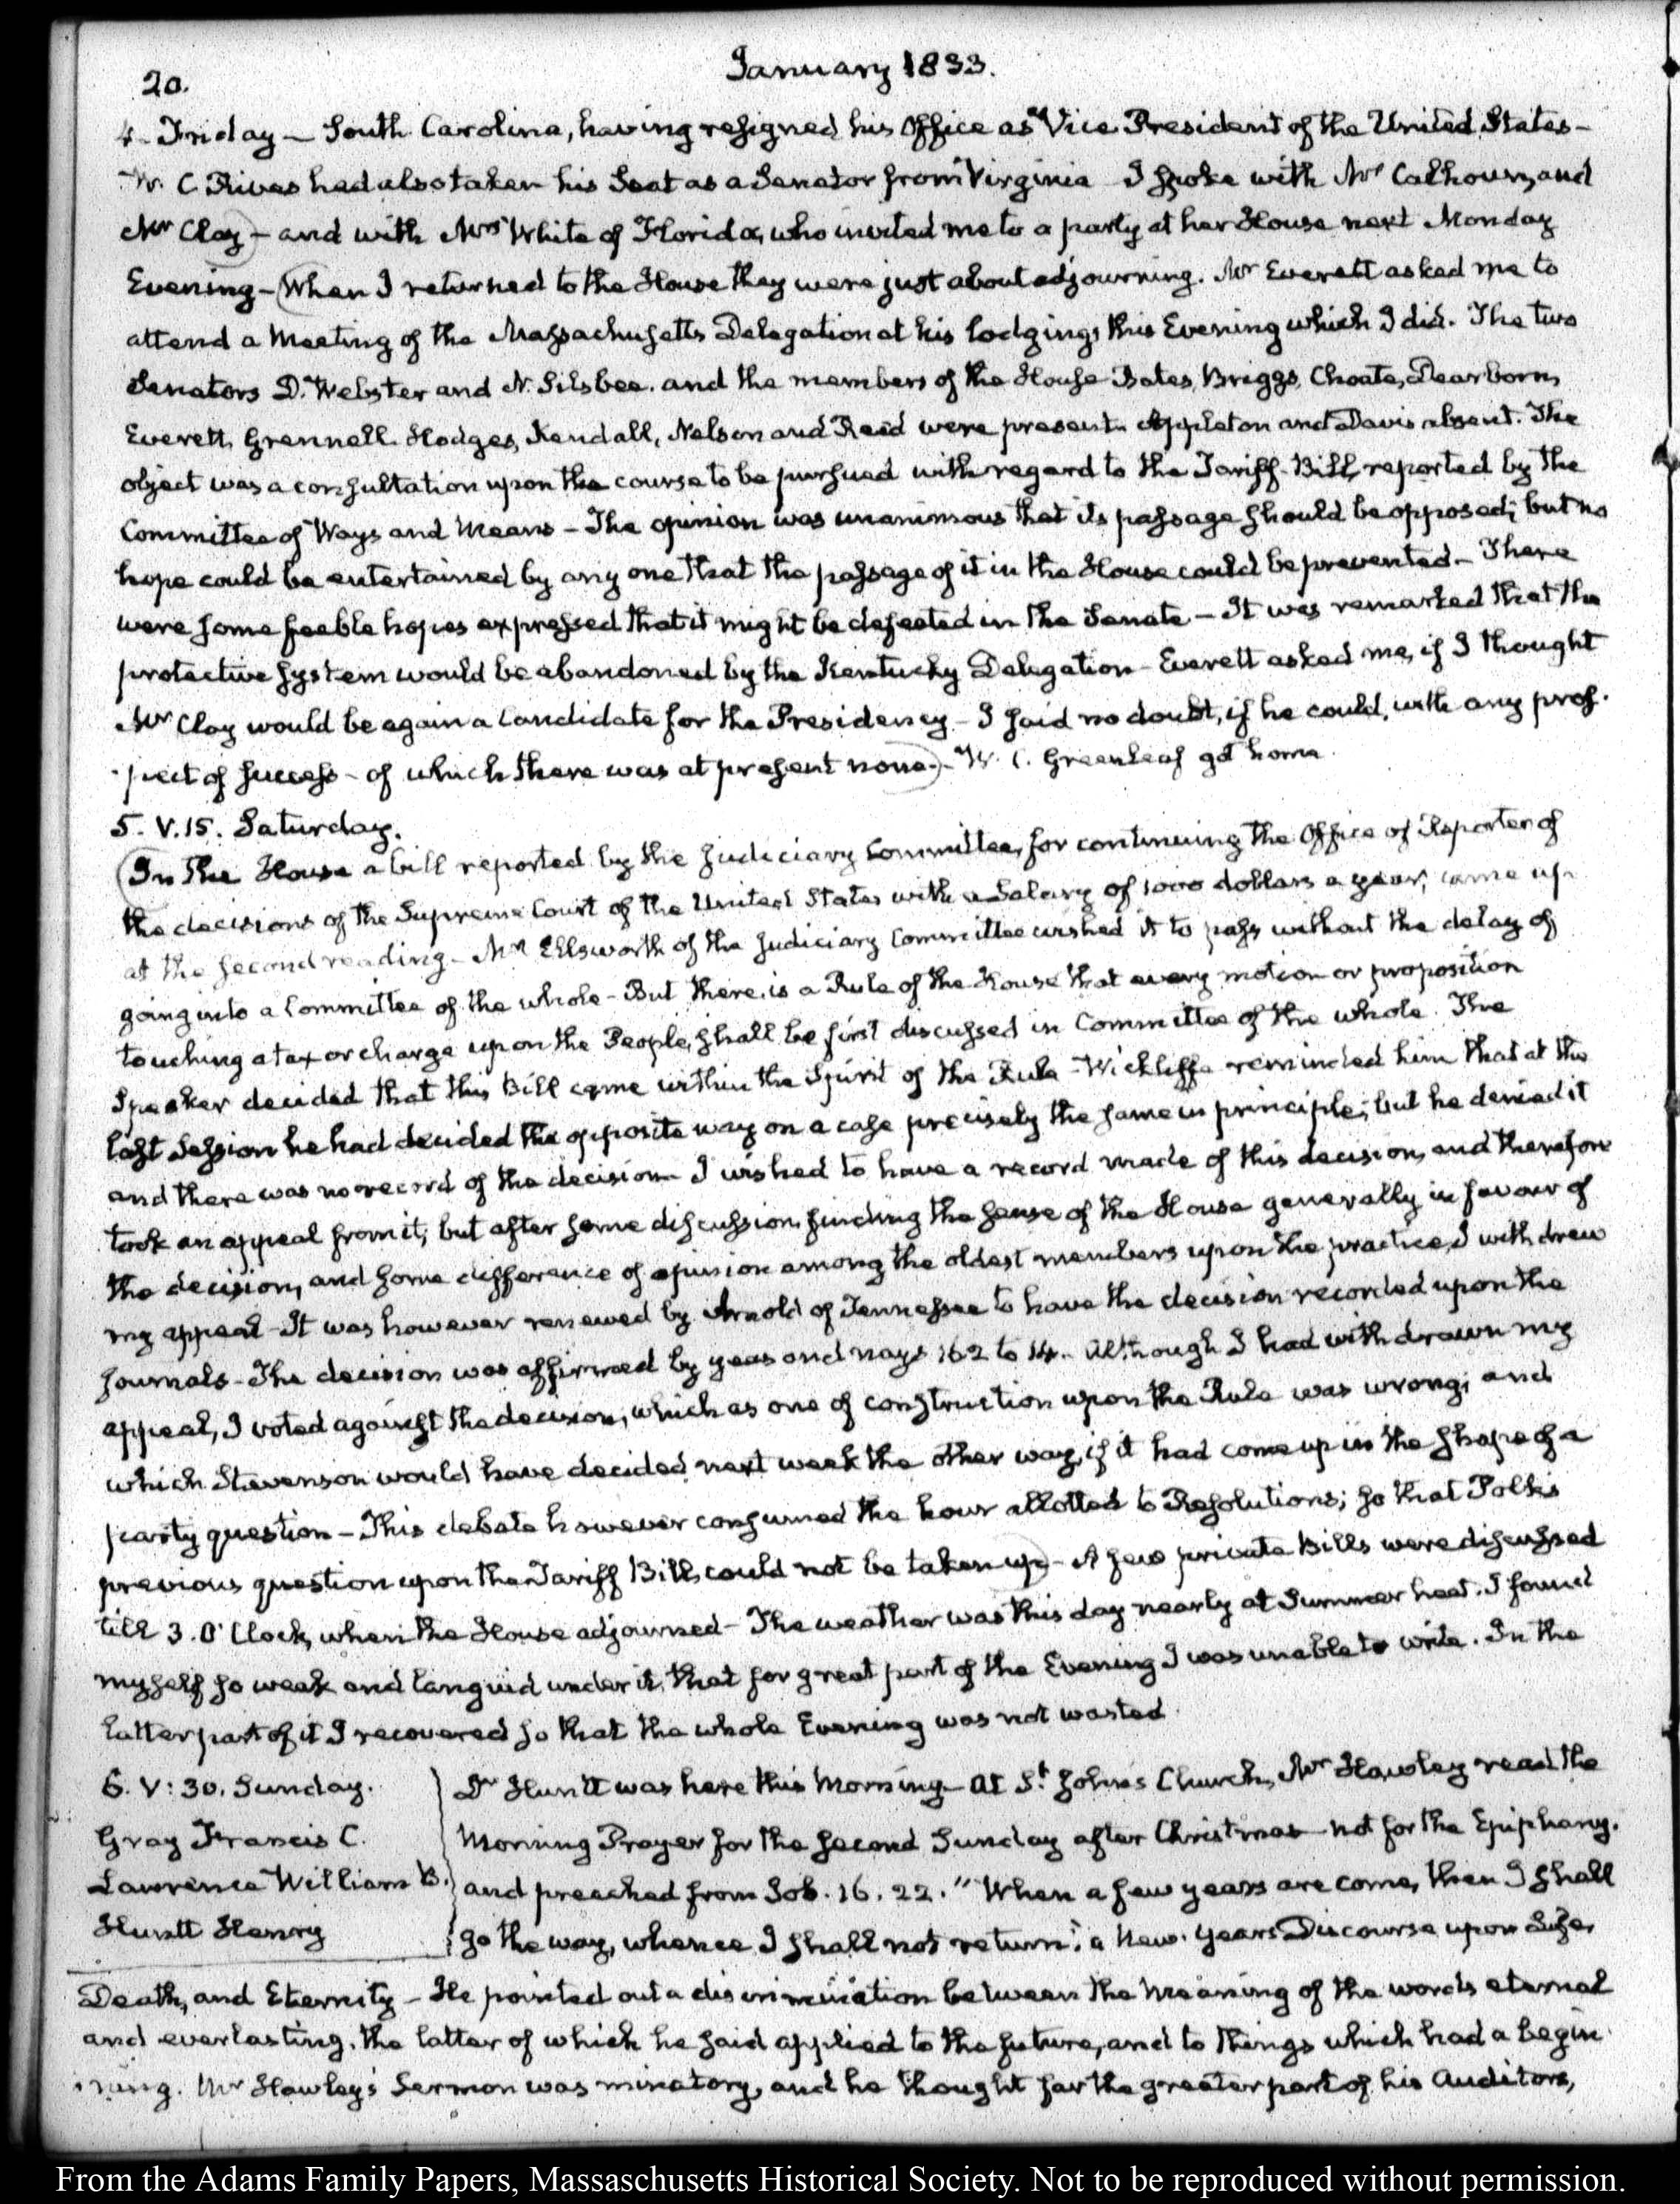 20.
January 1833.
4. Friday — South Carolina, having resigned his Office as Vice President of the United States —
W. C Rives had also taken his Seat as a Senator from Virginia I spoke with Mr Calhoun, and
Mr Clay — and with Mrs White of Florida, who invited me to a party at her House next Monday
Evening — When I returned to the House they were just about adjourning. Mr Everett asked me to
attend a Meeting of the Massachusetts Delegation at his lodgings this Evening which I did. The two
Senators D. Webster and N. Silsbee. and the members of the House Bates, Briggs, Choate, Dearborn,
Everett, Grennell Hodges, Kendall, Nelson and Reed were present. Appleton and Davis absent. The
object was a consultation upon the course to be pursued with regard to the Tariff-Bill, reported by the
Committee of Ways and Means — The opinion was unanimous that its passage should be opposed; but no
hope could be entertained by any one that the passage of it in the House could be prevented — There
were some feeble hopes expressed that it might be defeated in the Senate — It was remarked that the
protective system would be abandoned by the Kentucky Delegation — Everett asked me, if I thought
Mr Clay would be again a Candidate for the Presidency — I said no doubt, if he could, with any pros-
pect of success — of which there was at present none. — W. C. Greenleaf got home
5. V.15. Saturday.
In the House a bill reported by the Judiciary Committee, for continuing the Office of Reporter of
the decisions of the Supreme Court of the United States with a Salary of 1000 dollars a year, came up
at the second reading — Mr Ellsworth of the Judiciary Committee wished it to pass without the delay of
going into a Committee of the whole — But there is a Rule of the House that every motion or proposition
touching a tax or charge upon the People, shall be first discussed in Committee of the whole. The
Speaker decided that this Bill came within the Spirit of the Rule — Wickliffe reminded him that at the
last Session he had decided the opposite way on a case precisely the same in principle; but he denied it
and there was no record of the decision — I wished to have a record made of this decision, and therefore
took an appeal from it; but after some discussion, finding the sense of the House generally in favour of
the decision, and some difference of opinion among the oldest members upon the practice, I withdrew
my appeal — It was however renewed by Arnold of Tennessee to have the decision recorded upon the
journals — The decision was affirmed by yeas and nays 162 to 14. Although I had withdrawn my
appeal, I voted against the decision, which as one of construction upon the Rule was wrong; and
which Stevenson would have decided next week the other way, if it had come up in the shape of a
party question — This debate however consumed the hour allotted to Resolutions; so that Polk's
previous question upon the Tariff Bill, could not be taken up — A few private Bills were discussed
till 3. O'Clock, when the House adjourned — The weather was this day nearly at Summer heat. I found
myself so weak and languid under it, that for great part of the Evening I was unable to write. In the
latter part of it I recovered so that the whole Evening was not wasted.
6. V:30. Sunday.
Gray Francis C.
Lawrence William B.
Huntt Henry
Dr Huntt was here this Morning — At St. John's Church, Mr Hawley read the
Morning Prayer for the second Sunday after Christmas — not for the Epiphany.
and preached from Job. 16. 22. "When a few years are come, then I shall
go the way, whence I shall not return": a New Years Discourse upon Life,
Death, and Eternity — He pointed out a discrimination between the Meaning of the words eternal
and everlasting, the latter of which he said applied to the future, and to things which had a begin-
ning. Mr Hawley's Sermon was minatory, and he thought far the greater part of his Auditors,
From the Adams Family Papers, Massaschusetts Historical Society. Not to be reproduced without permission.